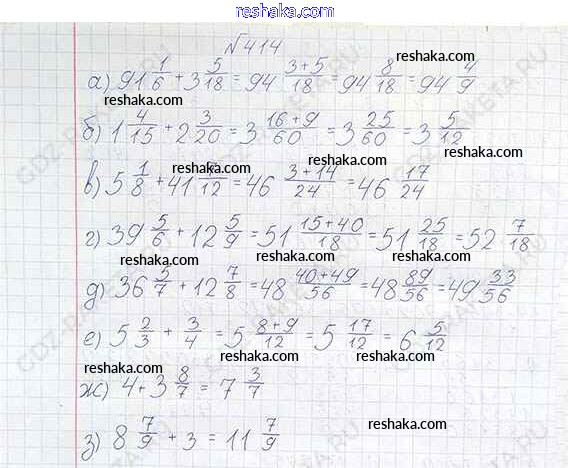 www.reshaka.com
№414
reshaka.com
а) 91 1/6 + 3 5/18 = 94 3+5/18 = 94 8/18 = 94 4/9
reshaka.com
б) 1 4/15 + 2 3/20 = 3 16+9/60 = 3 25/60 = 3 5/12
reshaka.com reshaka.com
в) 5 1/8 + 41 /12 = 46 3+14/24 = 46 17/24
reshaka.com
г) 39 5/6 + 12 5/9 = 51 15+40/18 = 51 25/18 = 52 7/18
reshaka.com reshaka.com
д) 36 5/7 + 12 7/8 = 48 40+49/56 = 48 89/56 = 49 33/56
reshaka.com
е) 5 2/3 + 3/4 = 5 8+9/12 = 5 17/12 = 6 5/12
reshaka.com reshaka.com
ж) 4 + 3 8/7 = 7 3/7
reshaka.com
з) 8 7/9 + 3 = 11 7/9
reshaka.com